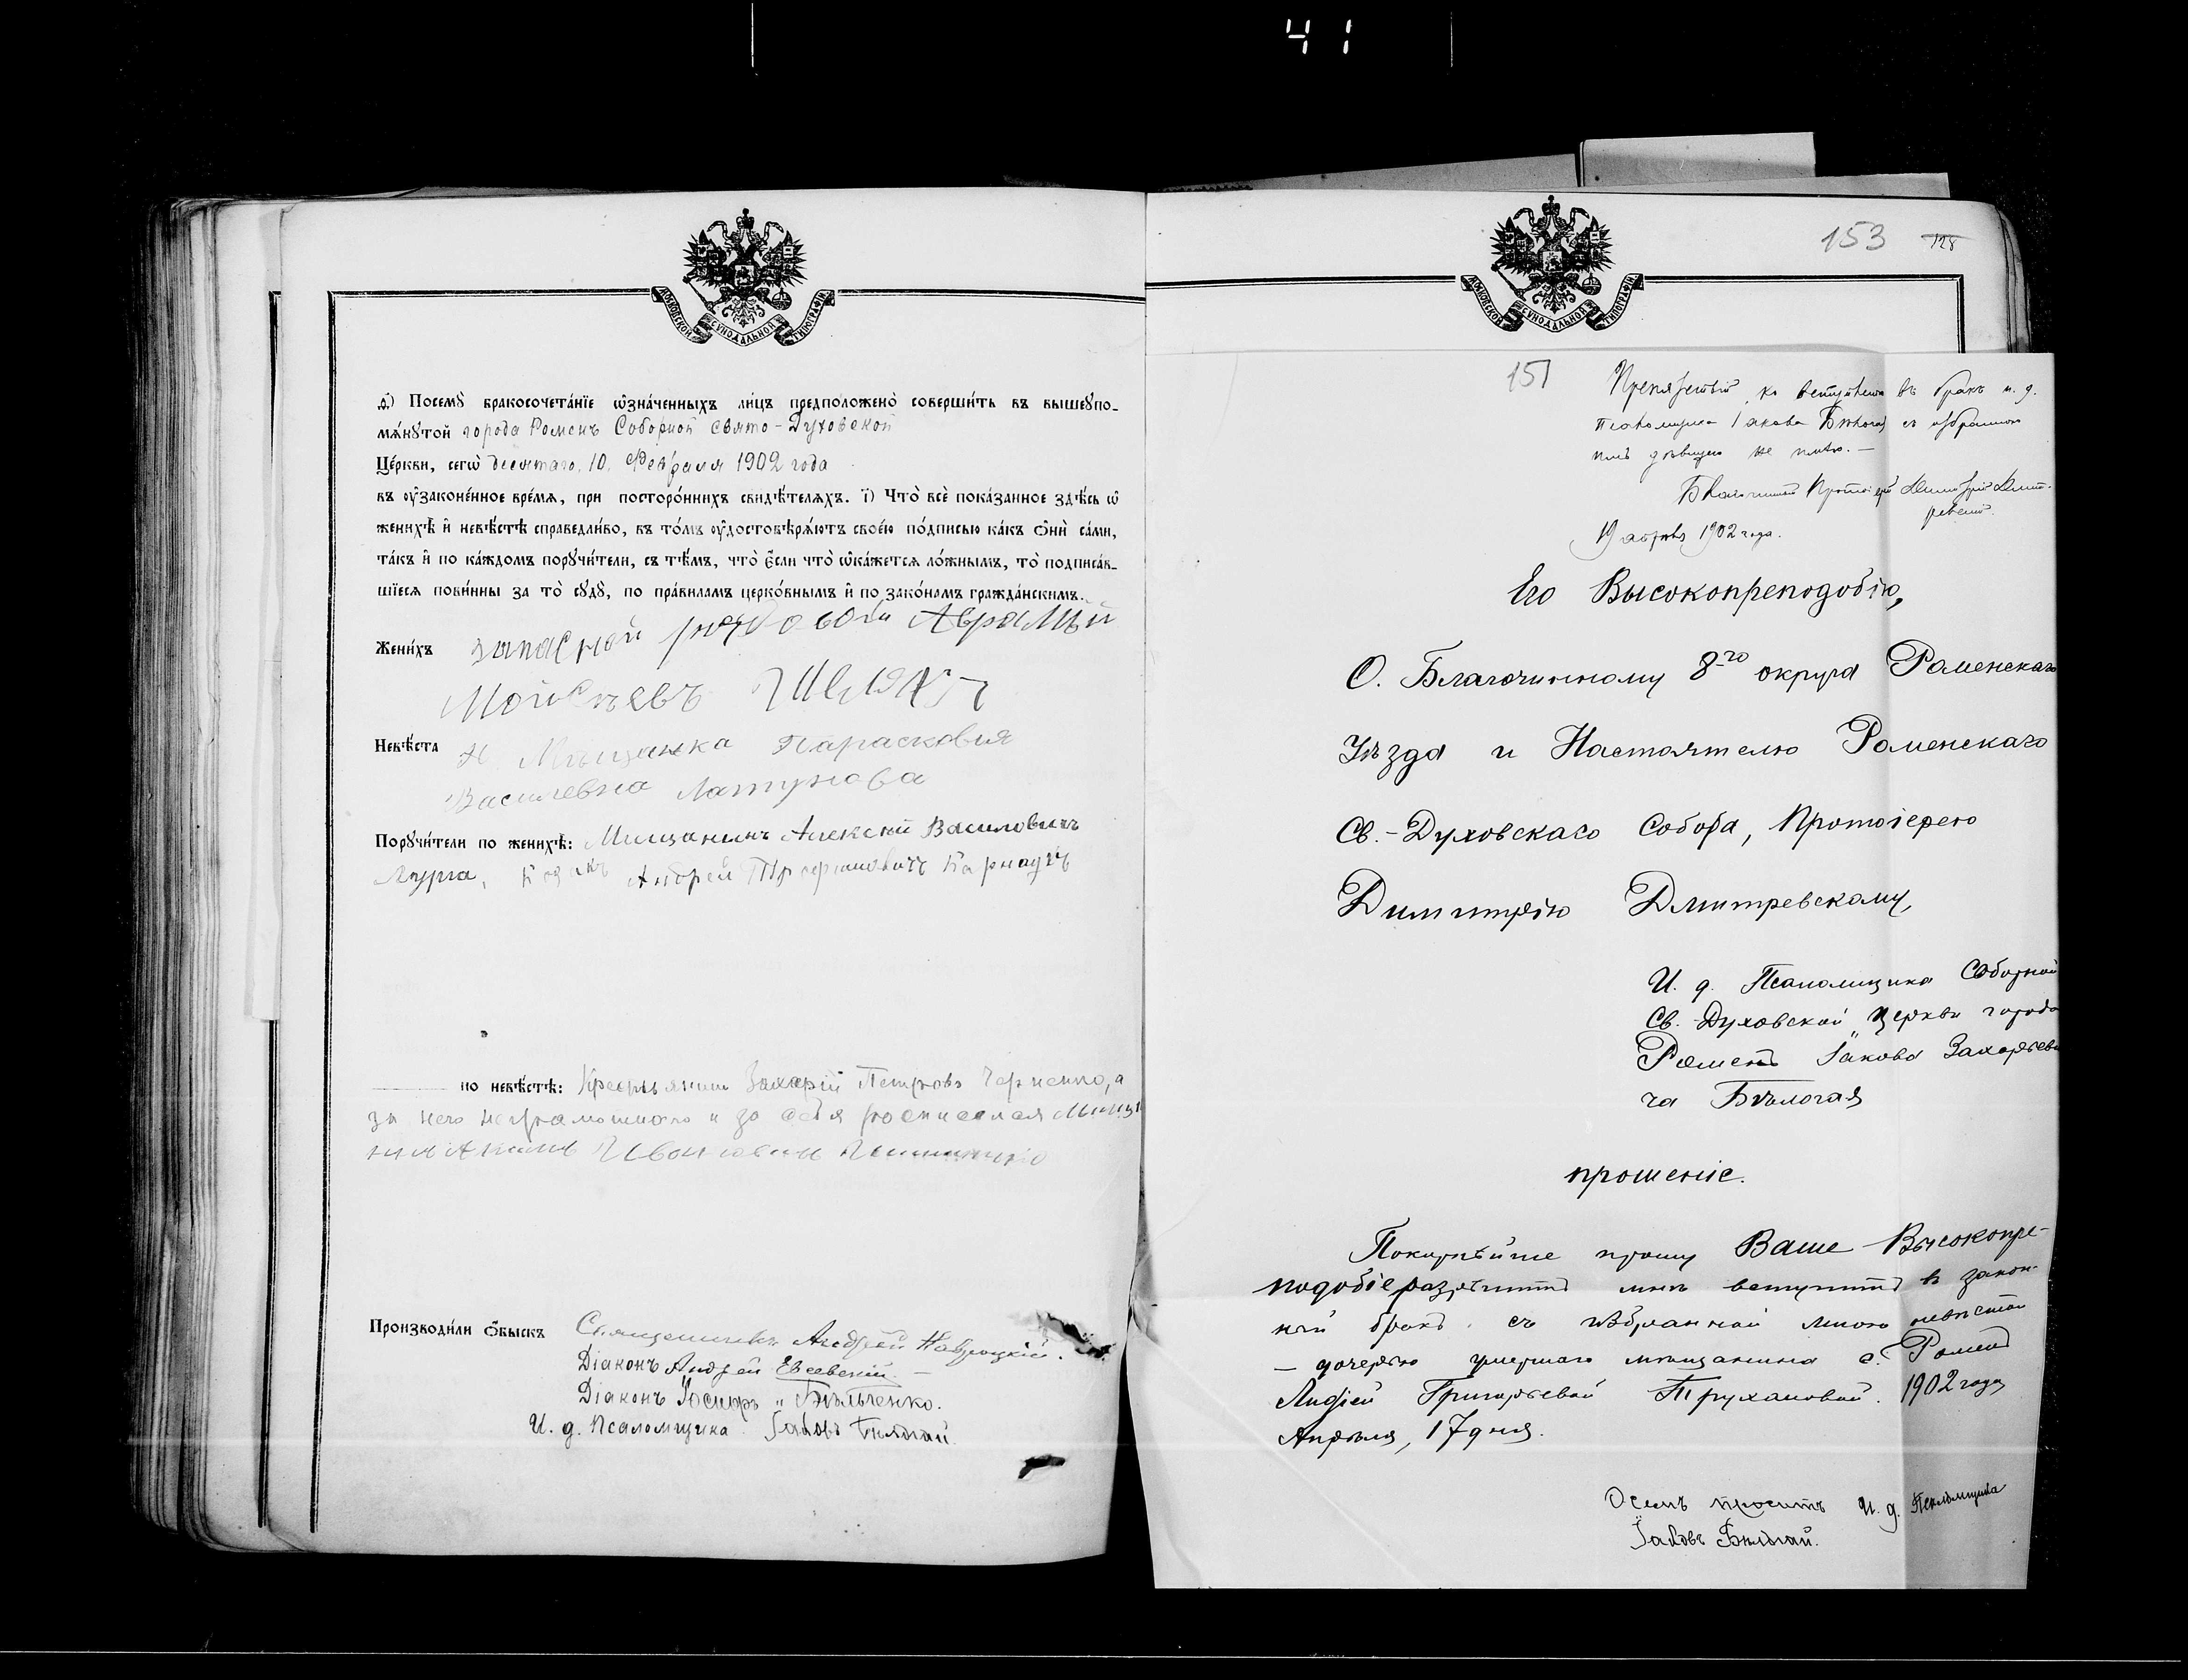 41
МОСКОВСКОЙ СѴНОДАЛЬНОЙ ТИПОГРАФІИ
д҃) Посемꙋ бракосочета́нїе ѡ҆зна́ченныхъ ли́цъ предположено̀ соверши́ть въ вышеꙋпо-
мѧ́нꙋтой города Роменъ Соборной свято-Духовской
Це́ркви, сегѡ̀ десятаго, 10, Февраля 1902 года
въ ᲂу҆законе́нное вре́мѧ, при посторо́ннихъ свидѣ́телѧхъ. і҃) Что̀ всѐ пока́занное здѣ́сь ѡ҆
женихѣ̀ и҆ невѣ́стѣ справедли́во, въ то́мъ ᲂу҆достовѣрѧ́ютъ свое́ю по́дписью ка́къ ѻ҆нѝ са́ми,
та́къ и҆ по ка́ждомъ порꙋчи́тели, съ тѣ́мъ, что̀ є҆́сли что̀ ѡ҆ка́жетсѧ ло́жнымъ, то̀ подписа́в-
шїесѧ пови́нны за то̀ сꙋдꙋ̀, по пра́виламъ церко́внымъ и҆ по зако́намъ гражда́нскимъ.
Жени́хъ запасной рядовой Аврамій
Мойсѣевъ
Невѣ́ста Мѣщанка Парасковія
Василевна Латунова
Порꙋчи́тели по женихѣ̀: Мищанинъ Алексѣй Василовичъ
Козакъ Андрей Трофимовичъ Карнаухъ
по невѣ́стѣ: Крестьянинъ Захарій Петровъ Черненко, а
за него неграмотного и за себя росписался Мищ
Производи́ли ѻ҆́быскъ Священникъ Андрей Навроцкій.
Діаконъ Андрей Евсевскій.
Діаконъ Іосифъ Бѣльченко.
И. д. Псаломщика Іаковъ Бѣлогай
МОСКОВСКОЙ СѴНОДАЛЬНОЙ ТИПОГРАФІИ
153 128
151
Препятствій ко вступленію въ бракъ и. д.
псаломщика Іакова Бѣлогая съ избранною
имъ дѣвицею не имѣю. —
Благочинный Протоіерей Димитрій Дмит-
ревскій.
19 апрѣля 1902 года.
Его Высокопреподобію,
О. Благочинному 8-го округа Роменскаго
Уѣзда и Настоятелю Роменскаго
Св.-Духовскаго Собора, Протоіерею
Димитрію Дмитревскому,
И. д. Псаломщика Соборной
Св.-Духовской церкви города
Роменъ Іакова Захарьеви
ча Бѣлогая
прошеніе.
Покорнѣйше прошу Ваше Высокопре-
подобіе разрѣшить мнѣ вступить въ закон-
ный бракъ съ избранной мною невѣстой
— дочерью умершаго мѣщанина г. Роменъ
Лидіей Григорьевой Трухановой. 1902 года
Апрѣля, 17 дня.
О семъ проситъ И. д. Псаломщика
Іаковъ Бѣлогай.